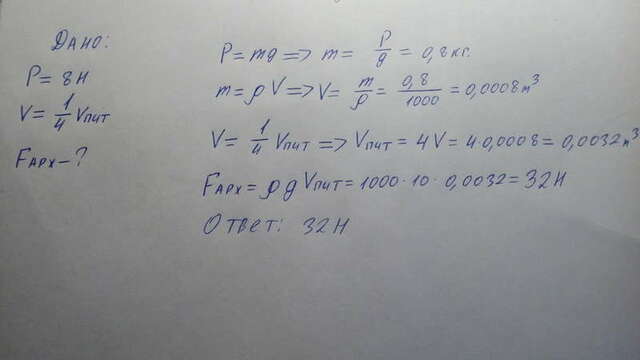 Дано:
P = 8 Н
V = 1/4 Vпит
Fарх - ?
P = mg => m = P/g = 0,8 кг.
m = ρV => V = m/ρ = 0,8/1000 = 0,0008 м³
V = 1/4 Vпит => Vпит = 4V = 4·0,0008 = 0,0032 м³
Fарх = ρg Vпит = 1000·10·0,0032 = 32 Н
Ответ: 32 Н